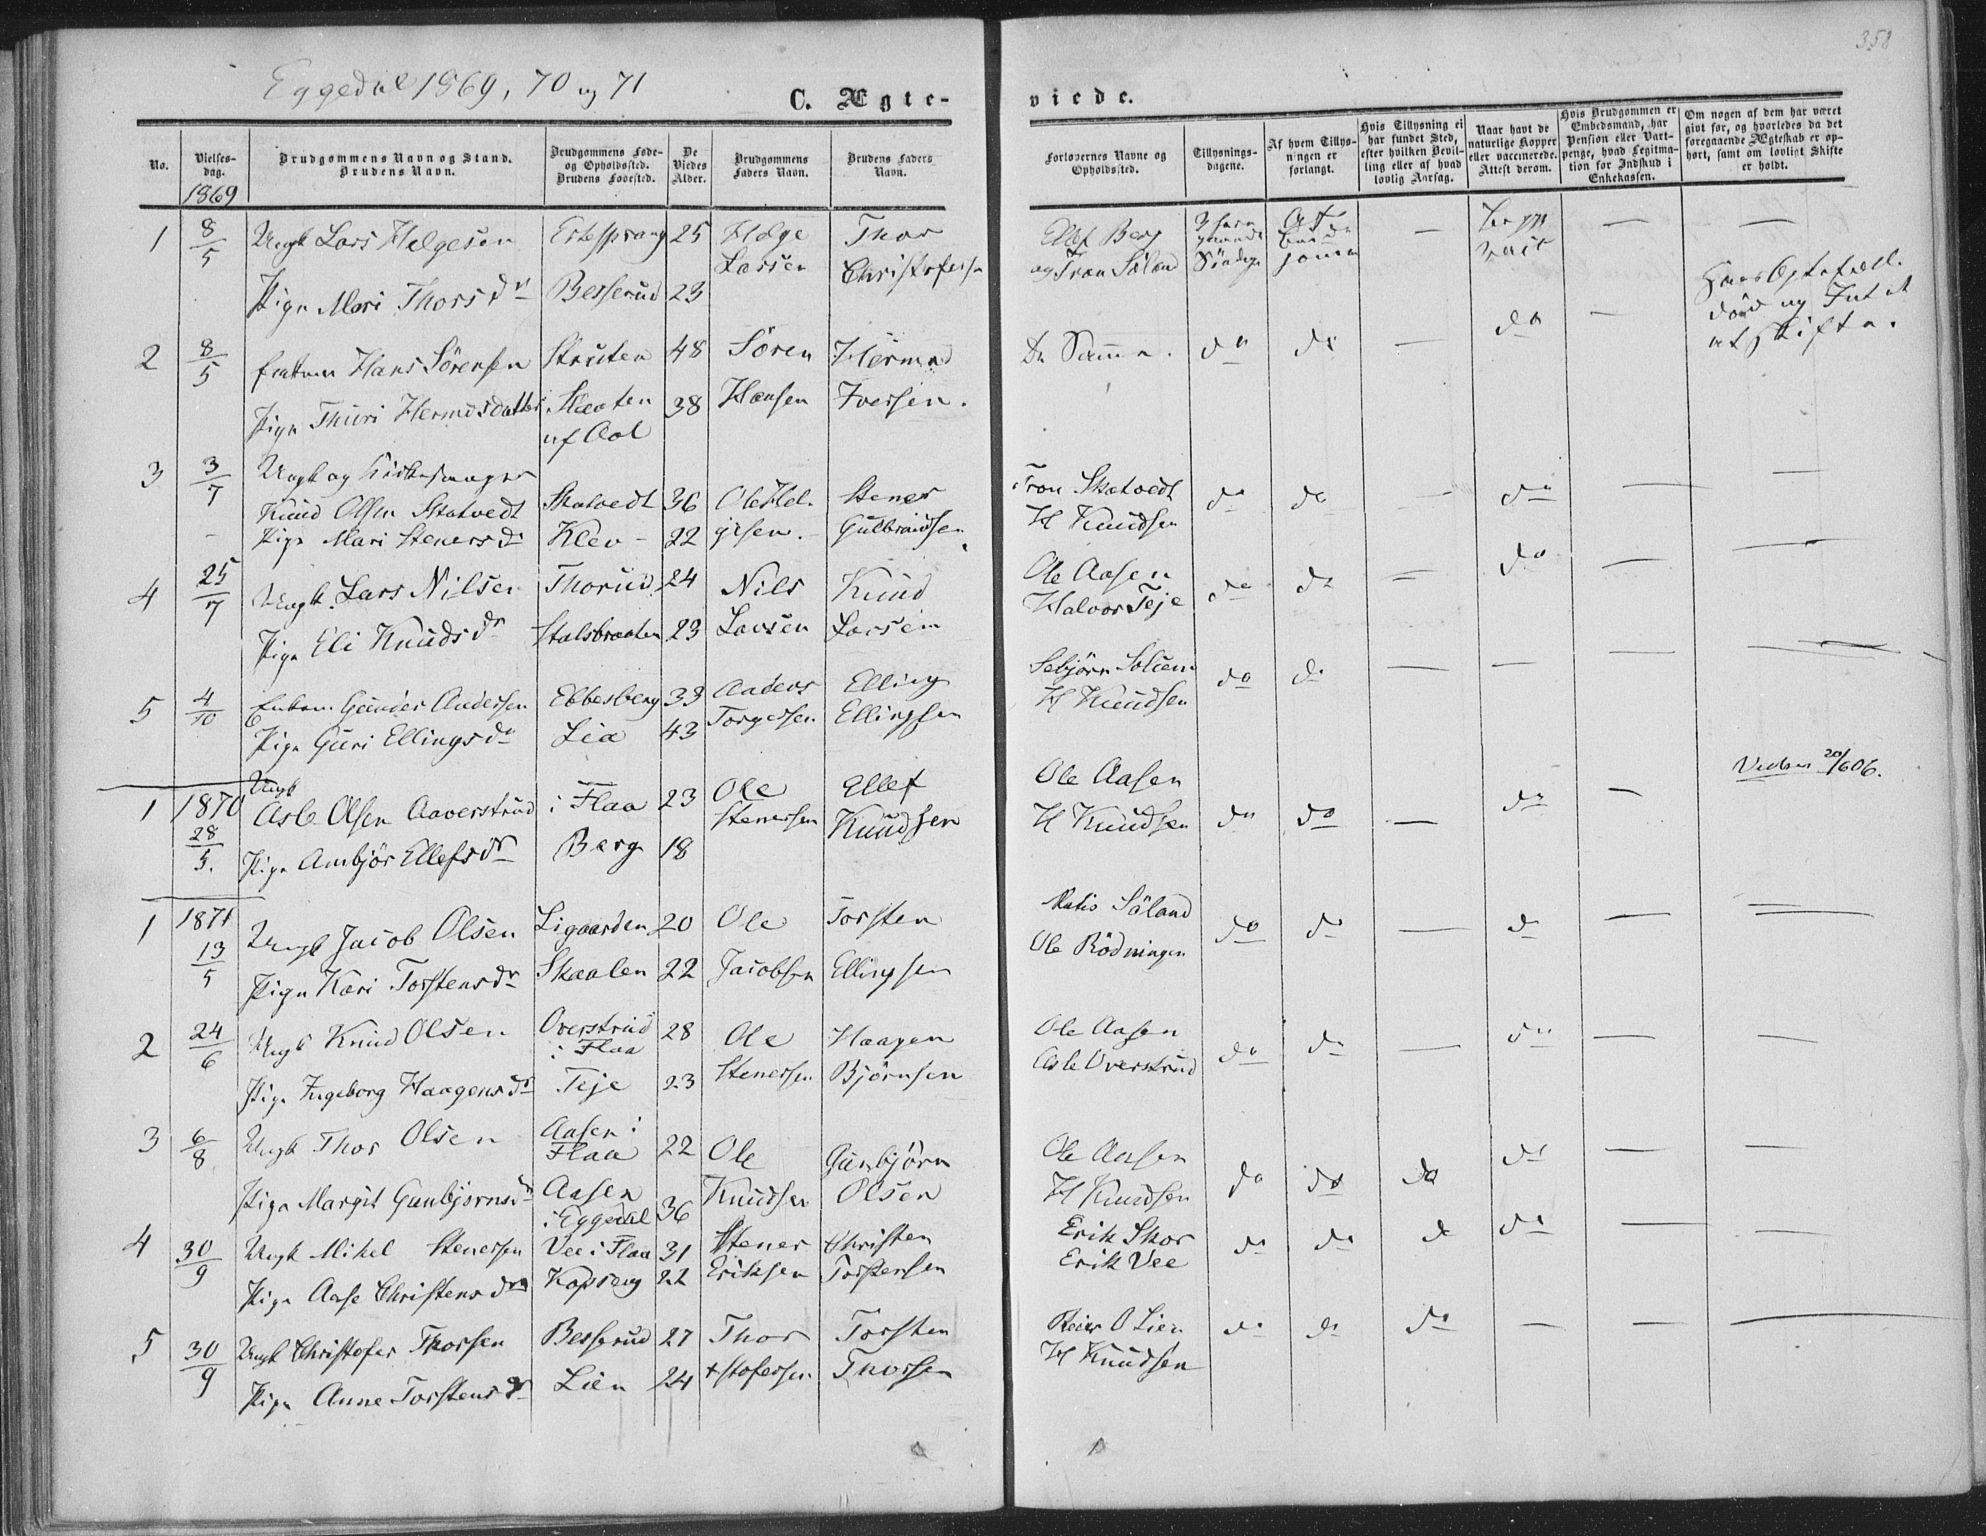 358
Eggedal 1869, 70 og 71
C. Ægte-
viede.
No.
Vielses-
dag.
1869
Brudgommens Navn og Stand.
Brudens Navn.
Brudgommens Føde-
og Opholdssted.
Brudens Fødested.
De
Viedes
Alder.
Brudgommens
Faders Navn.
Brudens Faders
Navn.
Forlovernes Navne og
Opholdssted.
Tillysnings-
dagene.
Af hvem Tillys-
ningen er
forlangt.
Hvis Tillysning ei
har fundet Sted,
efter hvilken Bevil-
ling eller af hvad
lovlig Aarsag.
Naar havt de
naturlige Kopper
eller vaccinerede.
Attest derom.
Hvis Brudgommen er
Embedsmand, har
Pension eller Vart-
penge, hvad Legitma-
tion for Indskud i
Enkekassen.
Om nogen af dem har været
givt før, og hvorledes da det
foregaaende Ægteskab er op-
hørt, samt om lovligt Skifte
er holdt.
1 8/5 Ungk Lars Helgesen 25 Helge Thor
Larsen Christofersen
Pige Mari Thorsdr Besserud 23
Ellef Berg
og Tron Søland
2 8/5 Enkem Hans Sörensen Struten 48 Sören Hermod
Pige Thuri Hermosdatter 38 Hansen Iversen.
af Aal
De Samme. do do — do —
død og Intet
at skifte.
3 3/7 Ungk og Kirkesanger
Knud Olsen Skatvedt Skatvedt 36 Ole Hel- Stener
Pige Mari Stenersdr Klev – 22 gesen. Gulbrandsen
Tron Skatvedt do do — do — —
H Knudsen
4 25/7 Ungk. Lars Nilsen Thorud 24 Nils Knud
Pige Eli Knudsdr Stalsbraaten 23 Larsen Larsen
Ole Aasen do do — do — —
Halvor Teje
5 4/10 Enkem. Gunder Andersen Ebbesberg 33 Anders Elling
Pige Guri Ellingsdr Lia 43 Torgersen Ellingsen
Sebjörn Solum do do — — — —
H Knudsen
1 1870 Ungk
Asle Olsen Aaverstrud i Flaa 23 Ole Ellef
28/5. Stenersen Knudsen
Pige Ambjör Ellefsdr Berg 18
Ole Aasen
H Knudsen do do — do —
20/606.
1 1871
13/5 Ungk Jacob Olsen Ligaarden 20 Ole Torsten
Pige Kari Torstensdr Skaalen 22 Jacobsen Ellingsen
Søland do do — do — —
Ole Rödningen
2 24/6 Ungk Knud Olsen Overstrud 28 Ole Haagen
i Flaa
Pige Ingeborg Haagensdr Teje 23 Stenersen Björnsen
Ole Aasen
Asle Overstrud do do — do — —
3 6/8 Ungk Thor Olsen Aasen i
Flaa 22 Ole Gunbjörn
Pige Margit Gunbjornsdr Aasen
i Eggedal 36 Knudsen Olsen
Ole Aasen
H Knudsen do do do do — —
4 30/9 Ungk Mikel Stenersen Vee i Flaa 31 Stener Christen
Pige Aase Christensdr Kopseng 22 Eriksen Torstensen
Erik Skor
Erik Vee do do d do — —
5 30/9 Ungk Christofer Thorsen Besserud 27 Thor Torsten
Pige Anne Torstensdr Lien 24 +stofersen Thorsen
Reier O Lien do do do — — —
H Knudsen